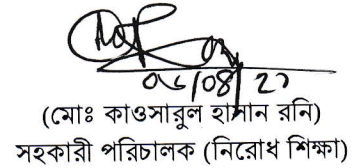 (মোঃ কাওসারুল হাসান রনি)
সহকারী পরিচালক (নিরোধ শিক্ষা)